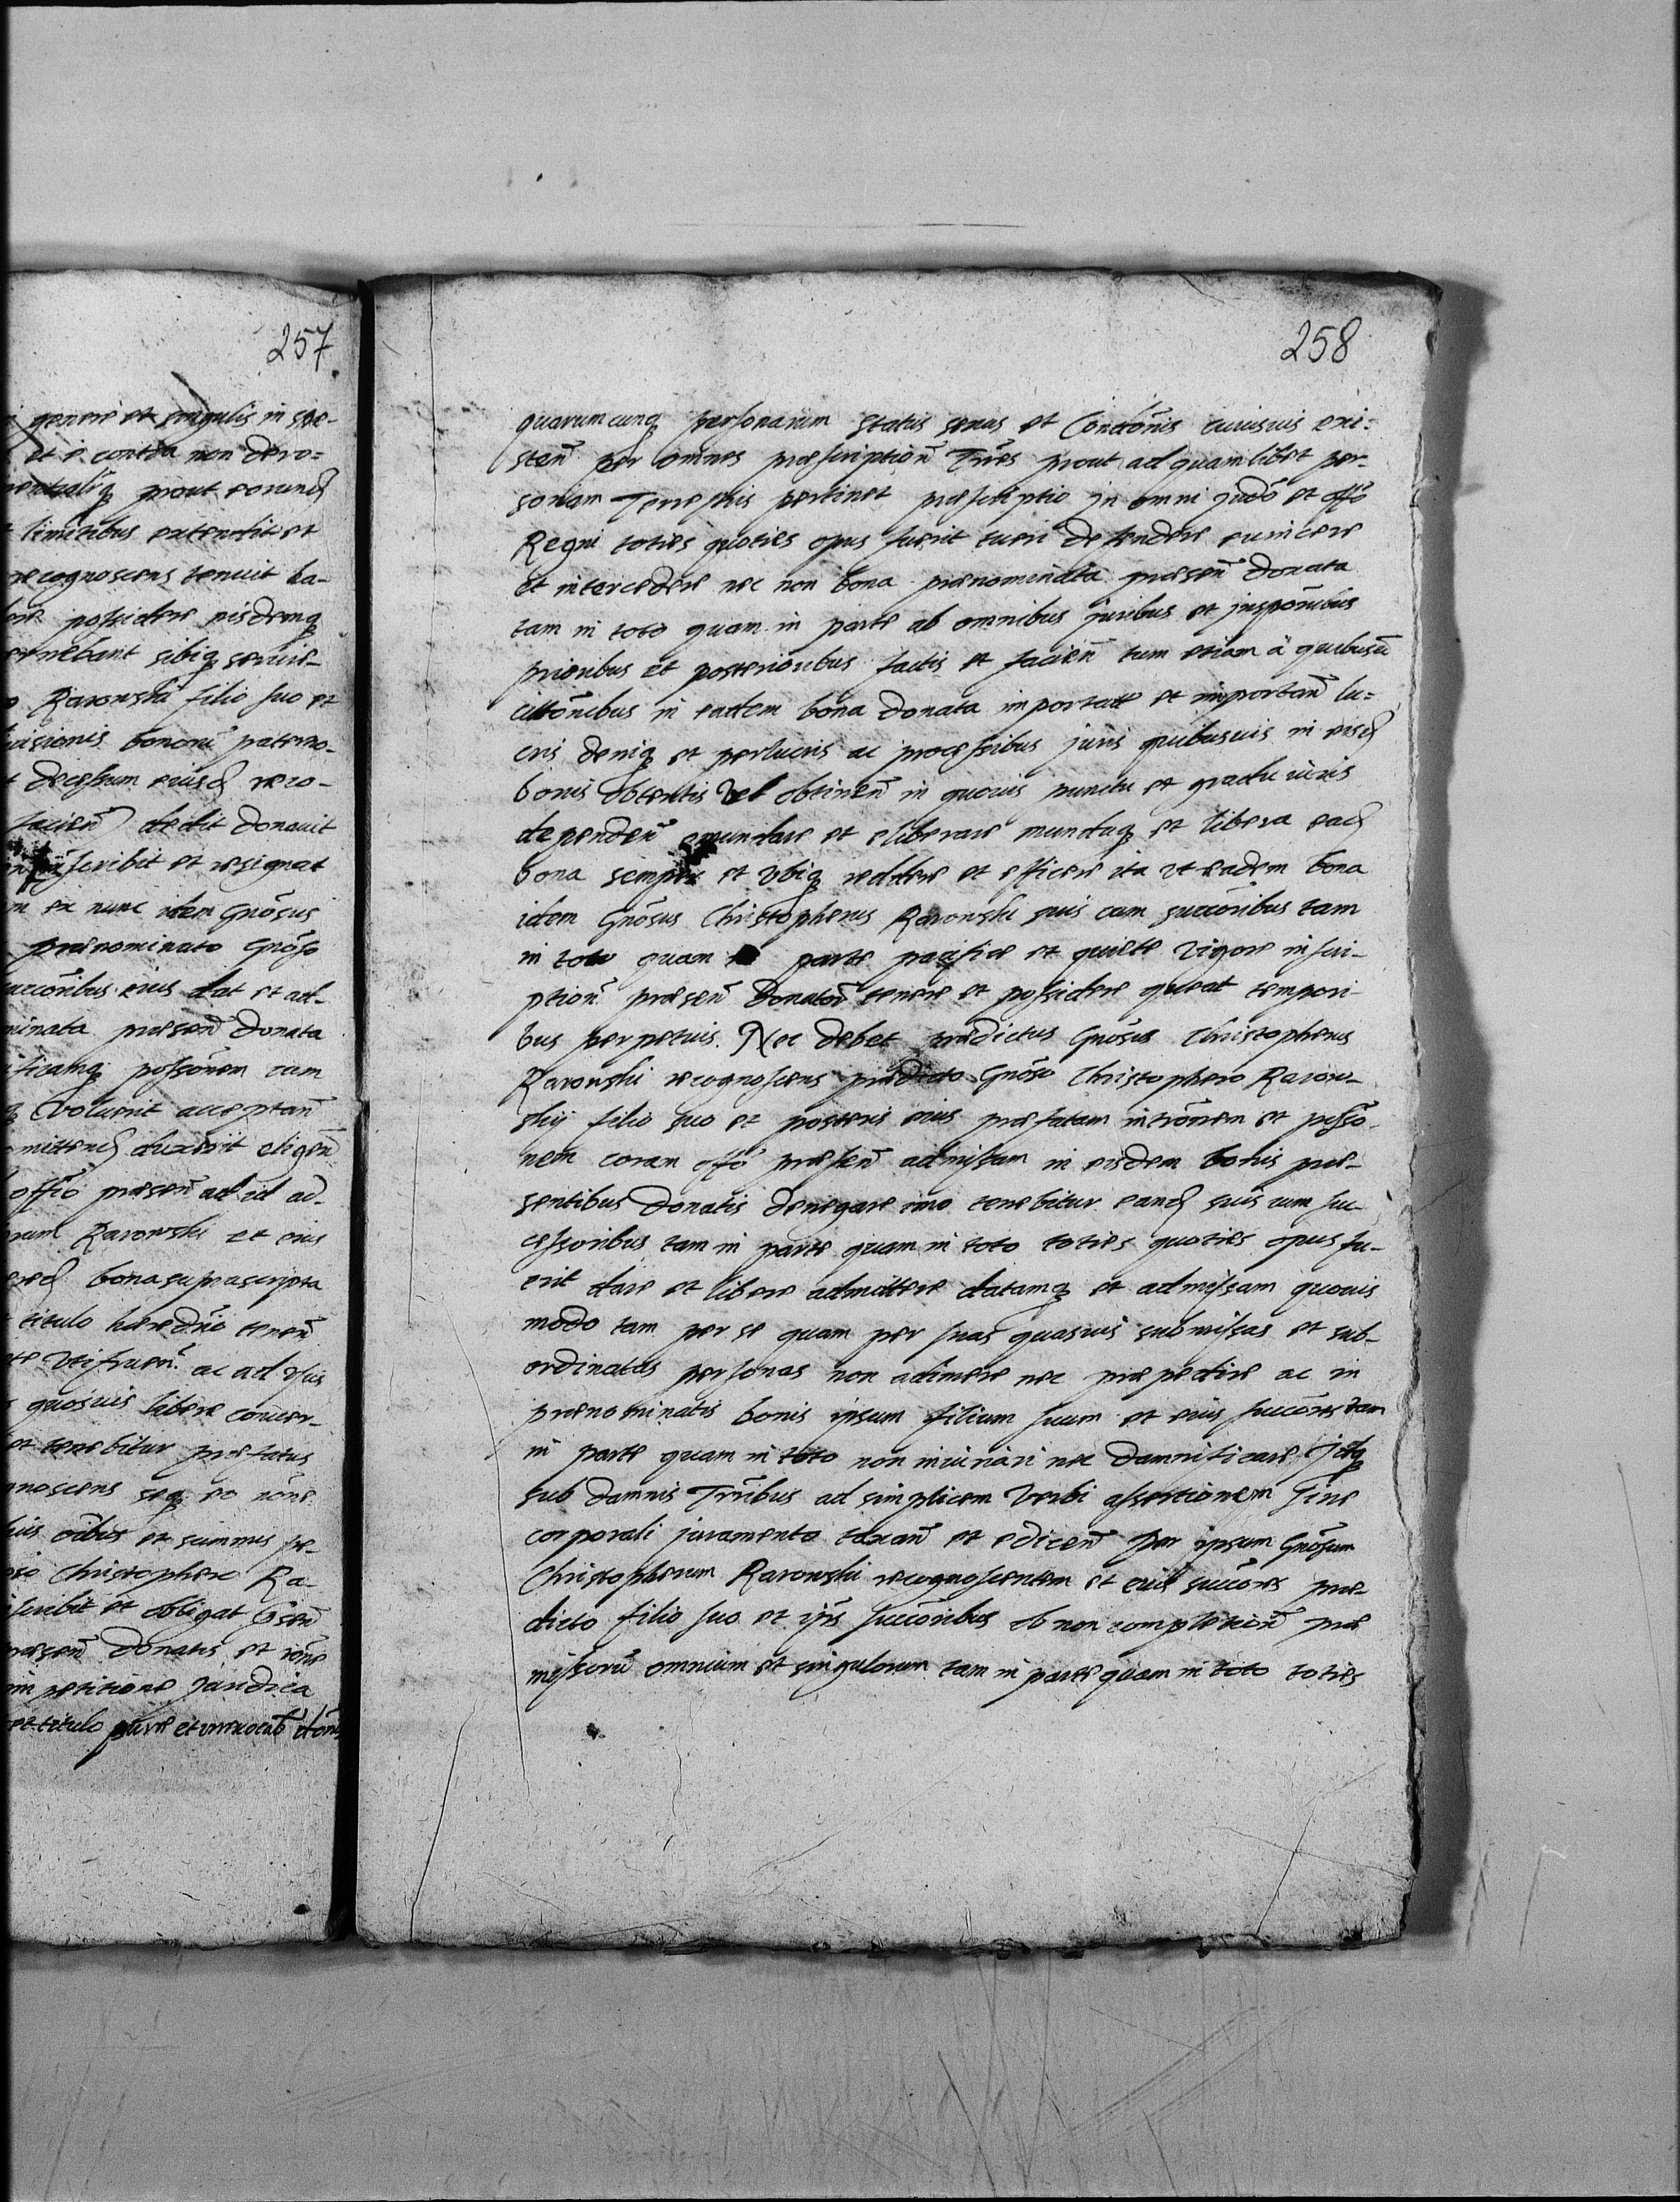 257
generė et singulis in spe-
et e contra non devo=
prout eorund
limitibus extendit et
recognoscens tenuit ha-
possidere eisdemq
sibiq servie-
Rarowski filio suo et
divisionis bonorū paterno-
decessum eiusd reco-
facien̄ dedit donavit
inscribit et resignat
ex nunc idem Gnōsus
prænominato Gnōso
succōribus eius dat et ad-
præsen̄ donata
possōnem cum
voluerit acceptan̄
duxerit eligen̄
offō præsen̄ ad id ad-
Rarowski et eius
bona suprascripta
titulo hæredrio tenen̄
utifruen̄ ac ad usus
quosvis libere conver-
et tenebitur præfatus
seq eo nōne
oībus et summis
Christophero Ra-
scribit et obligat
præsen̄ donatis et rōne
impetitione juridica
et titulo puræ et irrevocab dōnis
258
quarumcunq personarum status sexus et Condōnis cuiusvis exi=
sten̄ per omnes præscription̄ Trres prout ad quamlibet per-
sonam Terrestris pertinet præscriptio in omni judō et offō
Regni toties quoties opus fuerit tueri defendere evincere
et intercedere nec non bona prænominata præsen̄ donata
tam in toto quam in parte ab omnibus juribus et inspōnibus
prioribus et posterioribus factis et facien̄ tum etiam à quibusvis
cittōnibus in eadem bona donata importatt et importan̄ lu=
cris deniq et perlucris ac processibus juris quibusvis in eisd
bonis obtentis vel obtinen̄ in quovis punctu et gradu iuris
dependen̄ emundare et eliberare mundaq et libera ead
bona semper et ubiq reddere et efficere ita ut eadem bona
idem Gnōsus Christopherus Rarowski suis cum succōribus tam
in toto quam parte pacifice et quiete vigore inscri-
ption̄ præsen̄ Donatōr tenere et possidere queat tempori-
bus perpetuis. Nec debet prædictus Gnōsus Christopherus
Rarowski recognoscens prædicto Gnōso Christophero Rarow-
skij filio suo et posteris eius præfatam intrōnem et possō-
nem coram offō præsen̄ admissam in eisdem bonis præ-
sentibus donatis denegare imo tenebitur eand suis cum suc-
cessoribus tam in parte quam in toto toties quoties opus fu-
erit dare et libere admittere datamq et admissam quovis
modo tam per se quam per suas quasvis submissas et sub-
ordinatas personas non adimere nec præpedire ac in
prænominatis bonis ipsum filium suum et eius succōres tam
in parte quam in toto non iniuriari nec damnificare Idq
sub damnis Trribus ad simplicem verbi assertionem sine
corporali juramento taxan̄ et edicen̄ per ipsum Gnōsum
Christopherum Rarowski recognoscentem et eius succōres præ-
dicto filio suo et ipīs succōribus ob non completion̄ præ
missorū omnium et singulorum tam in parte quam in toto toties